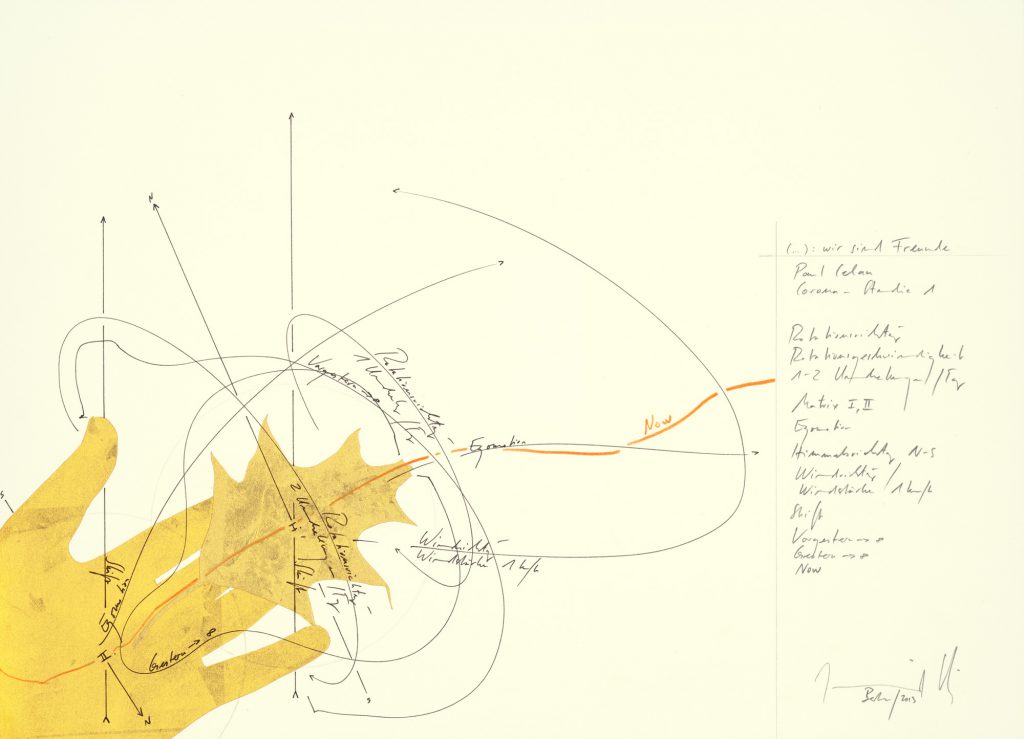 N
Vorgestern → ∞
Rotationsrichtung
1 Umdrehung/Tag
Now
Egomotion
S
2 Umdrehungen/Tag
Rotationsrichtung
I
Shift
Windrichtung
Windstärke 1 km/h
Shift
Egomotion
II
Gestern → ∞
N
S
(...): wir sind Freunde
Paul Celan
Corona - Studie 1
Rotationsrichtung
Rotationsgeschwindigkeit
1-2 Umdrehungen/Tag
Matrix I, II
Egomotion
Himmelsrichtung N-S
Windrichtung/
Windstärke 1 km/h
Shift
Vorgestern → ∞
Gestern → ∞
Now
Berlin/2013